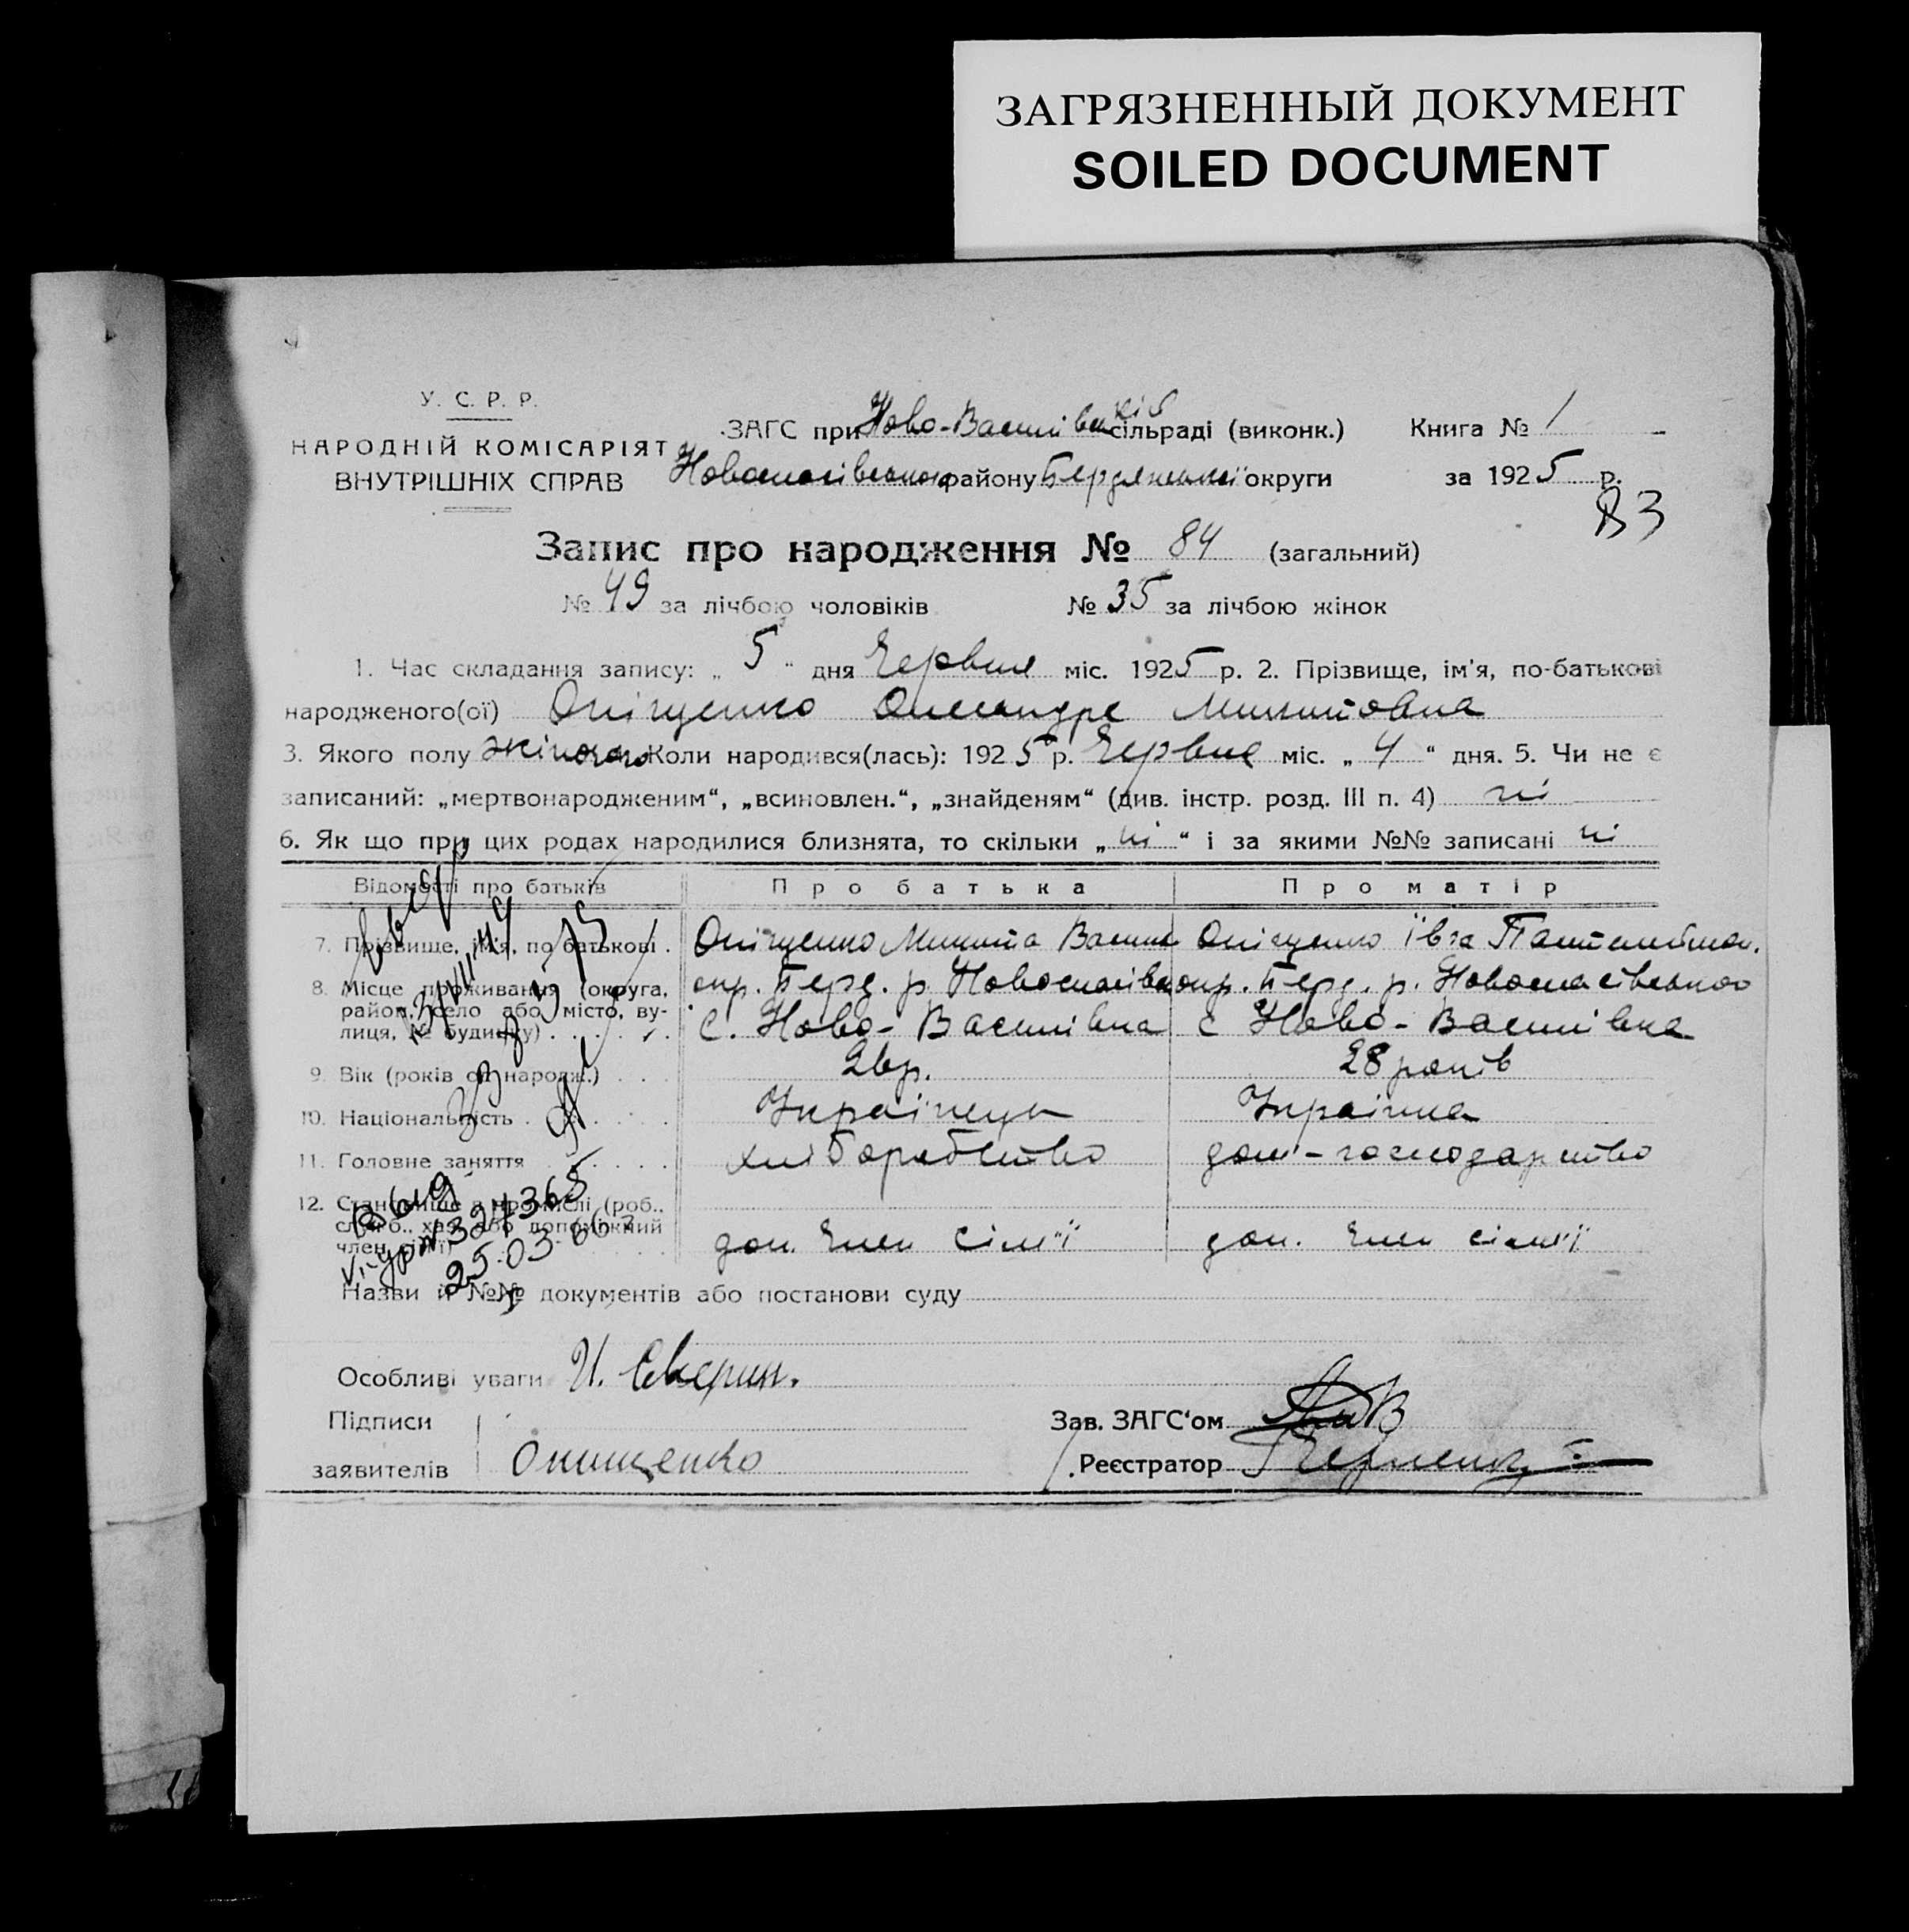 ЗАГРЯЗНЕННЫЙ ДОКУМЕНТ
SOILED DOCUMENT
У. С. Р. Р.
НАРОДНІЙ КОМІСАРІЯТ
ВНУТРІШНІХ СПРАВ
ЗАГС при Ново-Василівській сільраді (виконк.) Книга № 1
Новоспасівського району Бердянської округи за 1925 р.
83
Запис про народження № 84 (загальний)
№ 49 за лічбою чоловіків № 35 за лічбою жінок
1. Час складання запису: „ 5 " дня Червня міс. 1925 р. 2. Прізвище, ім'я, по-батькові
народженого(ої) Оніщенко Олександра Микитовна
3. Якого полу жіночого Коли народився(лась): 1925 р. Червня міс. „ 4 " дня. 5. Чи не є
записаний: „мертвонародженим", „всиновлен.", „знайденям" (див. інстр. розд. III п. 4) ні
6. Як що при цих родах народилися близнята, то скільки „ ні " і за якими №№ записані ні
Відомості про батьків Про батька Про матір
7. Прізвище, ім'я, по батькові . Оніщенко Микита Васил Оніщенко Івга Пантелеймон.
8. Місце проживання (округа, район, село або місто, вулиця, № будинку) окр. Берд. р. Новоспасівськ окр. Берд. р. Новоспасівського
с. Ново-Василівка с Ново-Василівка
9. Вік (років од народж.) 26р. 28 років
10. Національність Українець Українка
11. Головне заняття хліборобство дом-господарство
12. Становище в промислі (роб., служб., хаз. або допоміжний член сім'ї) доп. член сім'ї доп. член сім'ї
324365
25.03.66
Назви й №№ документів або постанови суду
Особливі уваги
Підписи
заявителів Онищенко
Зав. ЗАГС'ом
Реєстратор